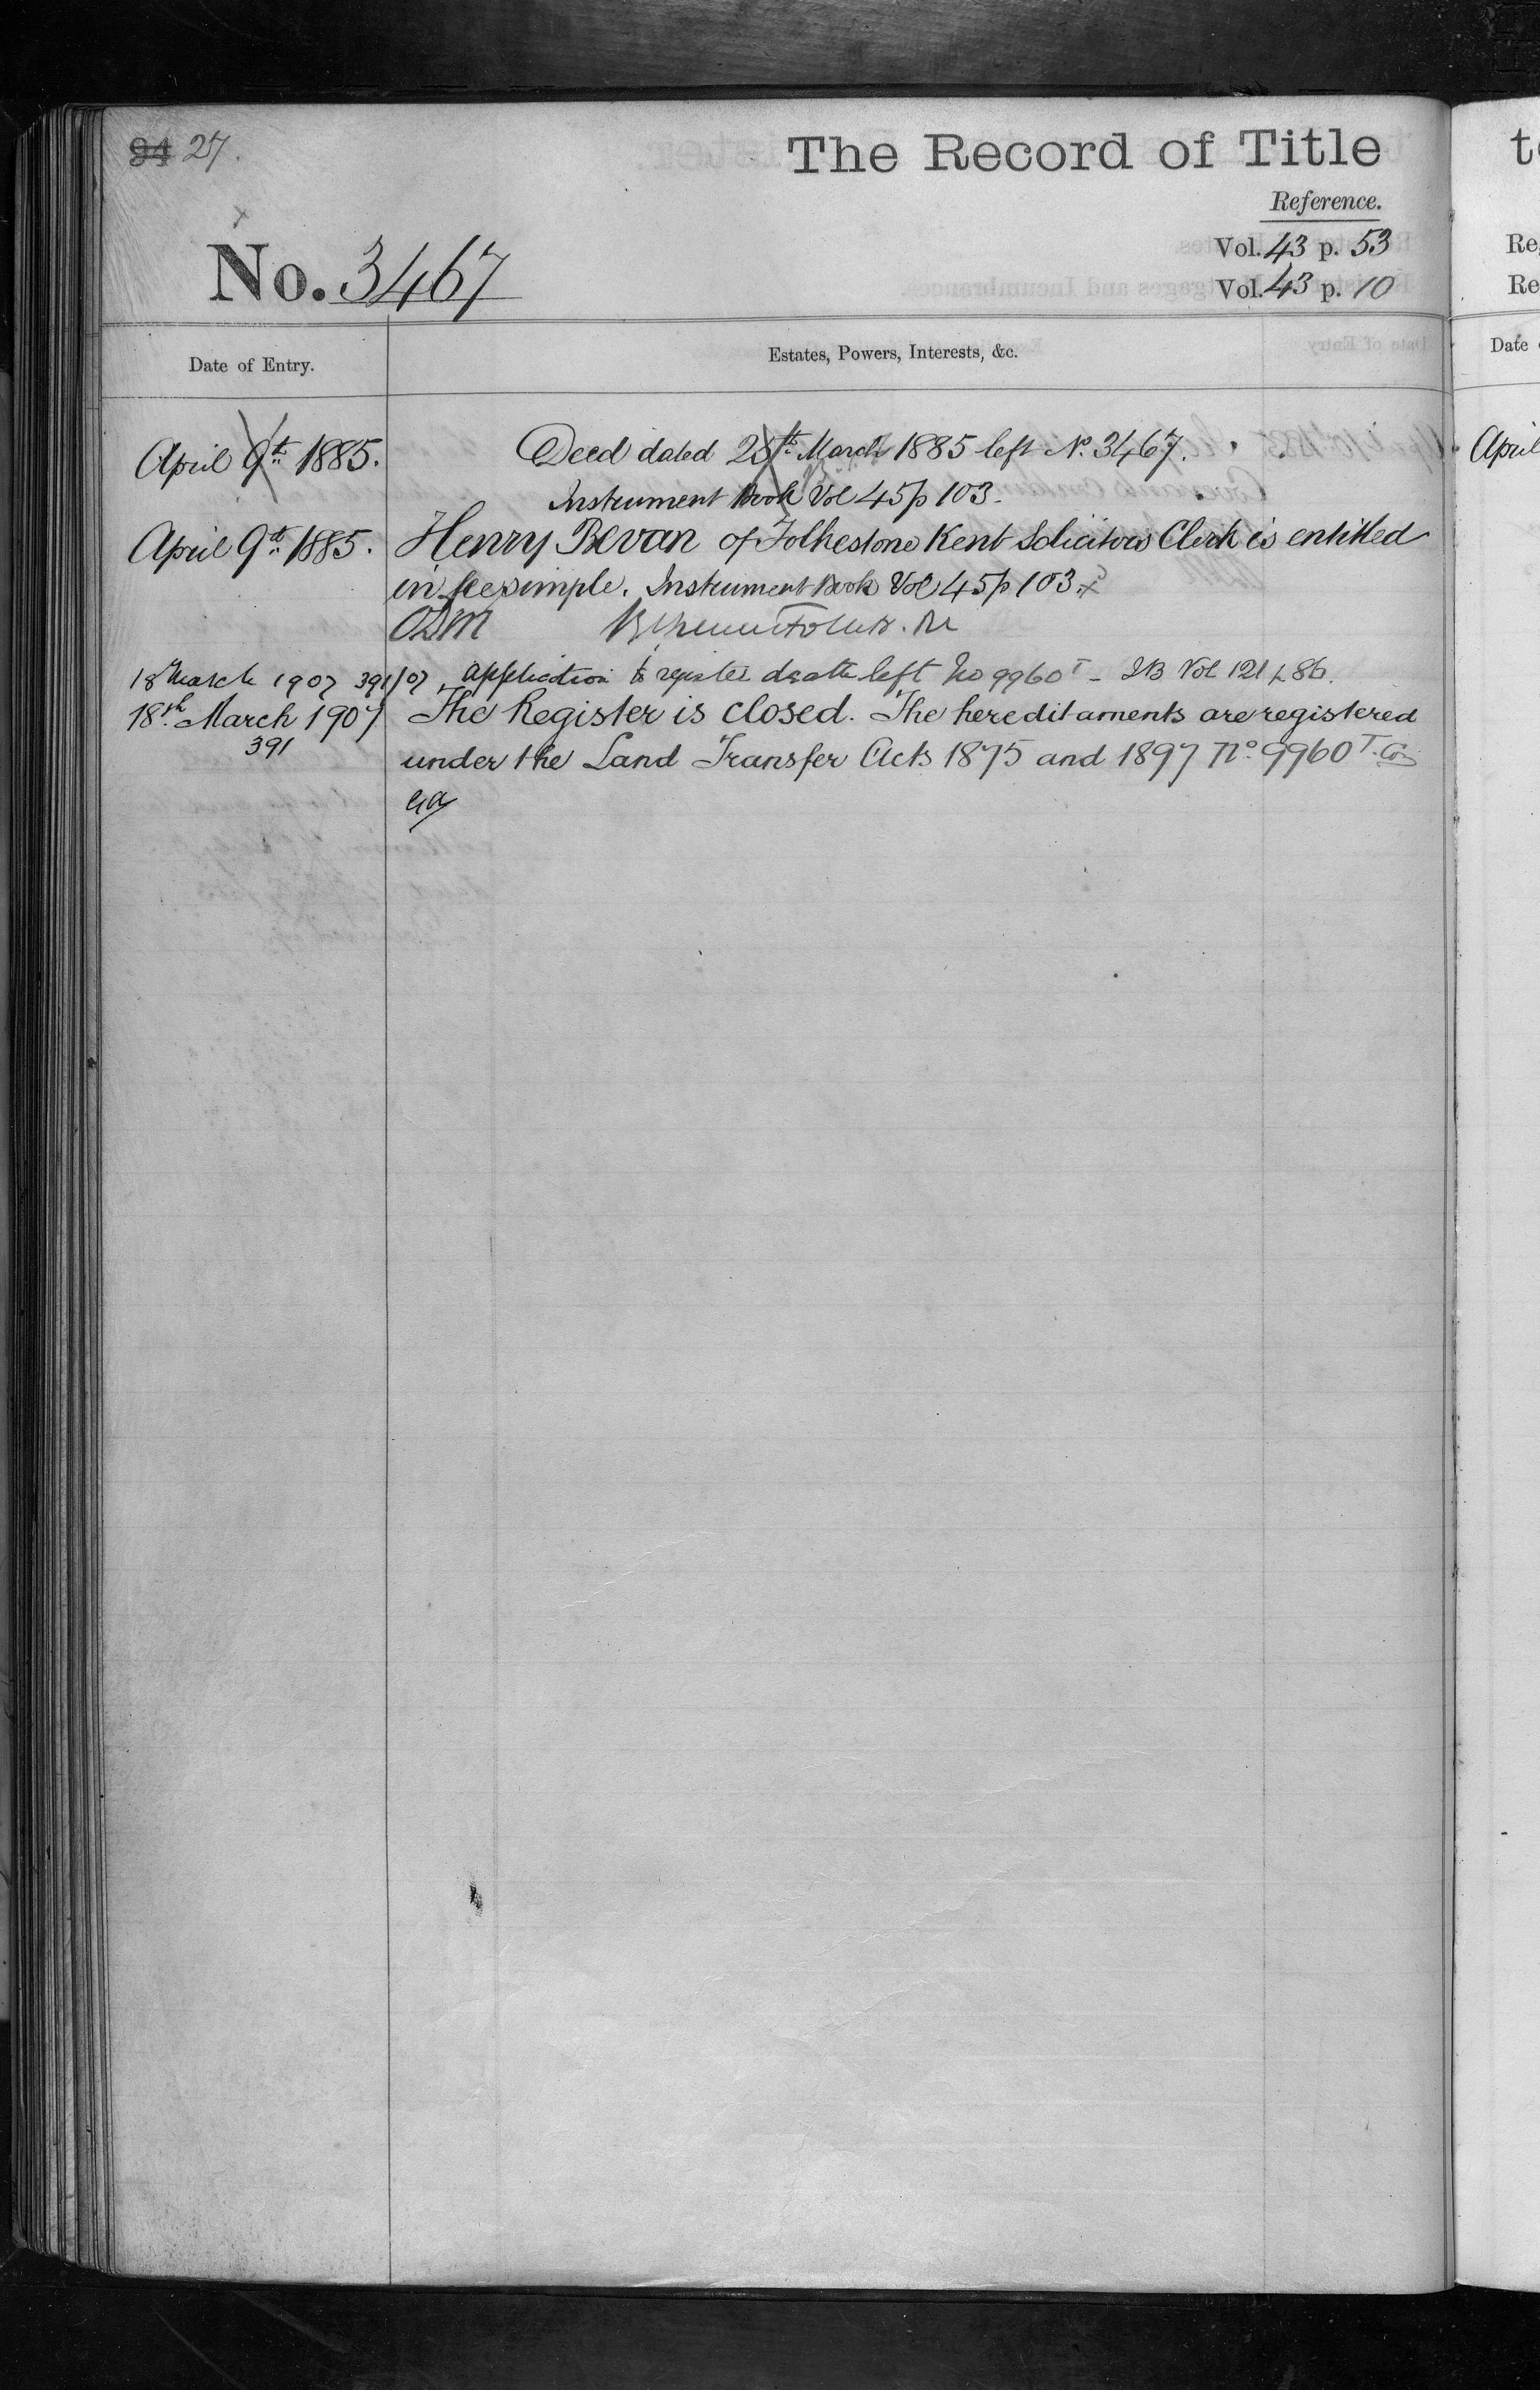 94 27.
The Record of Title
Reference.
Vol. 43 p. 53
No. 3467
Vol. 43 p. 10
Date of Entry.
Estates, Powers, Interests, &c.
April 9th 1885.
Deed dated 28th March 1885 left No. 3467.
Instrument Book Vol 45 p 103.
April 9th 1885.
Henry Bevan of Folkestone Kent Solicitors Clerk is entitled
in fee simple. Instrument Book Vol 45 p 103.
ODM
18 March 1907 391/07
Application to register death left No 9960T - IB Vol 121 p 86.
18th March 1907
The Register is closed. The hereditaments are registered
391
under the Land Transfer Acts 1875 and 1897 No. 9960T.
t
Re
Re
Date
April